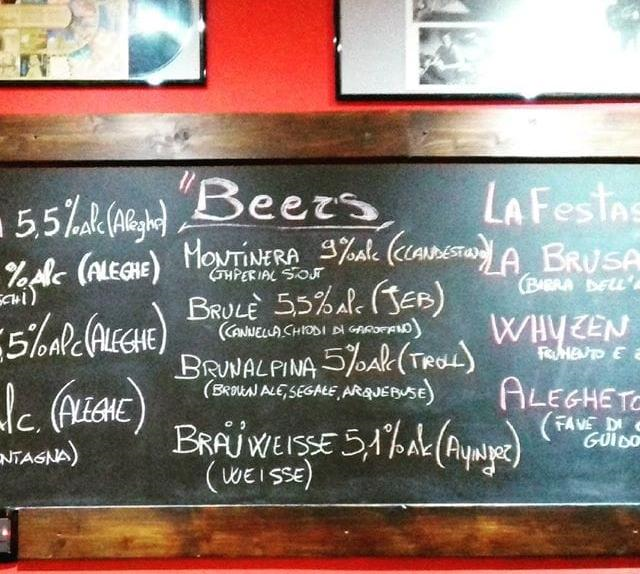 5,5%alc (Aleghe)
%alc (ALEGHE)
5%alc (ALEGHE)
lc. (ALEGHE)
NTAGNA)
"Beers
MONTINERA 9%alc (CLANDESTINO)
(IMPERIAL STOUT
BRULÈ 5,5%alc (JEB)
(CANNELLA, CHIODI DI GAROFANO)
BRUNALPINA 5%alc (TROLL)
(BROWN ALE, SEGALE, ARQUEBUSE)
BRÄUWEISSE 5,1%alc (Ayinger)
(WEISSE)
LA Festa
LA BRUSA
(BIRRA DELL'
WHYZEN
FRUMENTO E
ALEGHETO
(FAVE DI
GUIDO